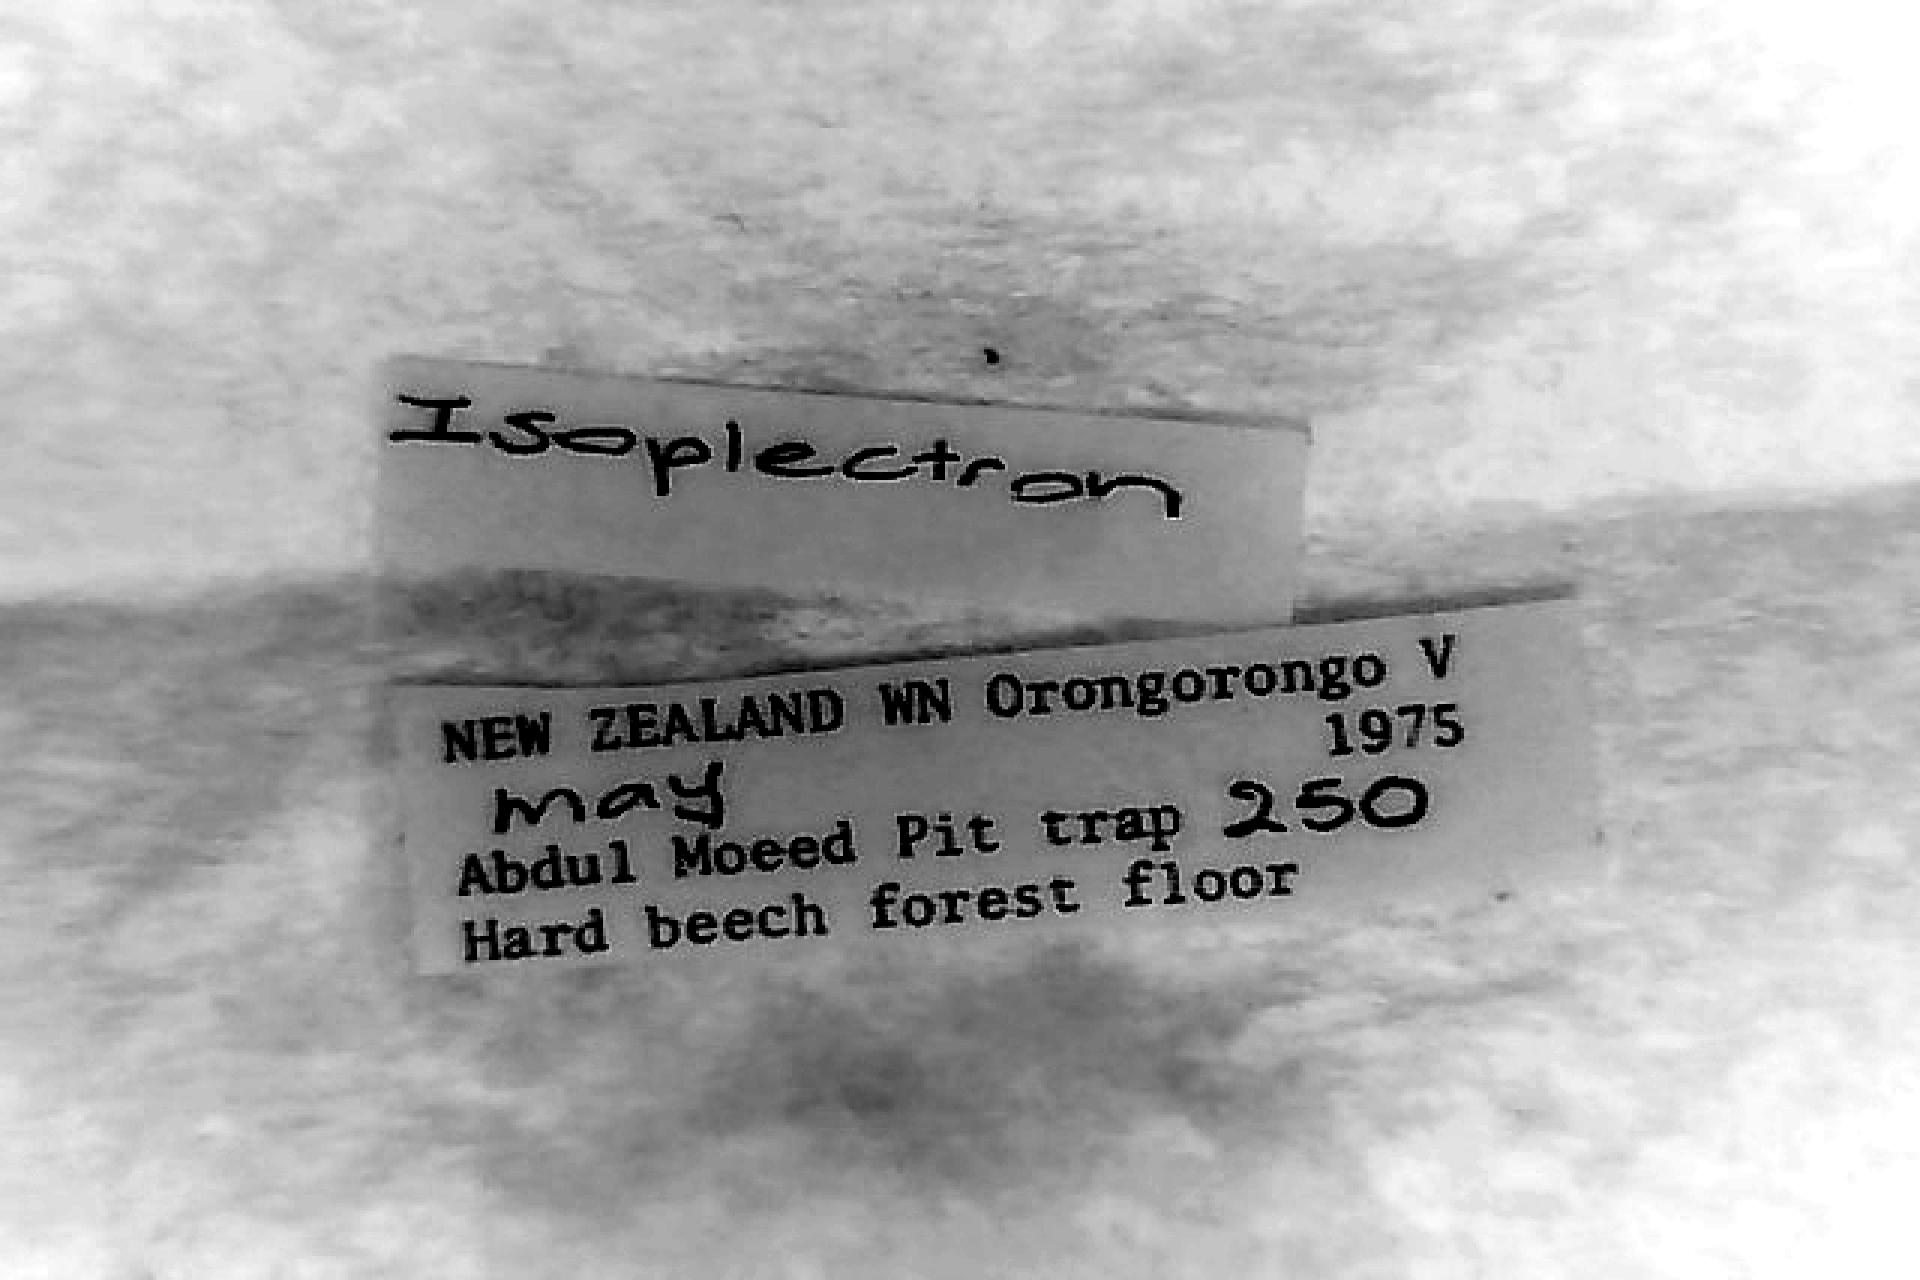 Isoplectron
NEW ZEALAND WN Orongorongo V
1975
may
Abdul Moeed Pit trap 250
Hard beech forest floor